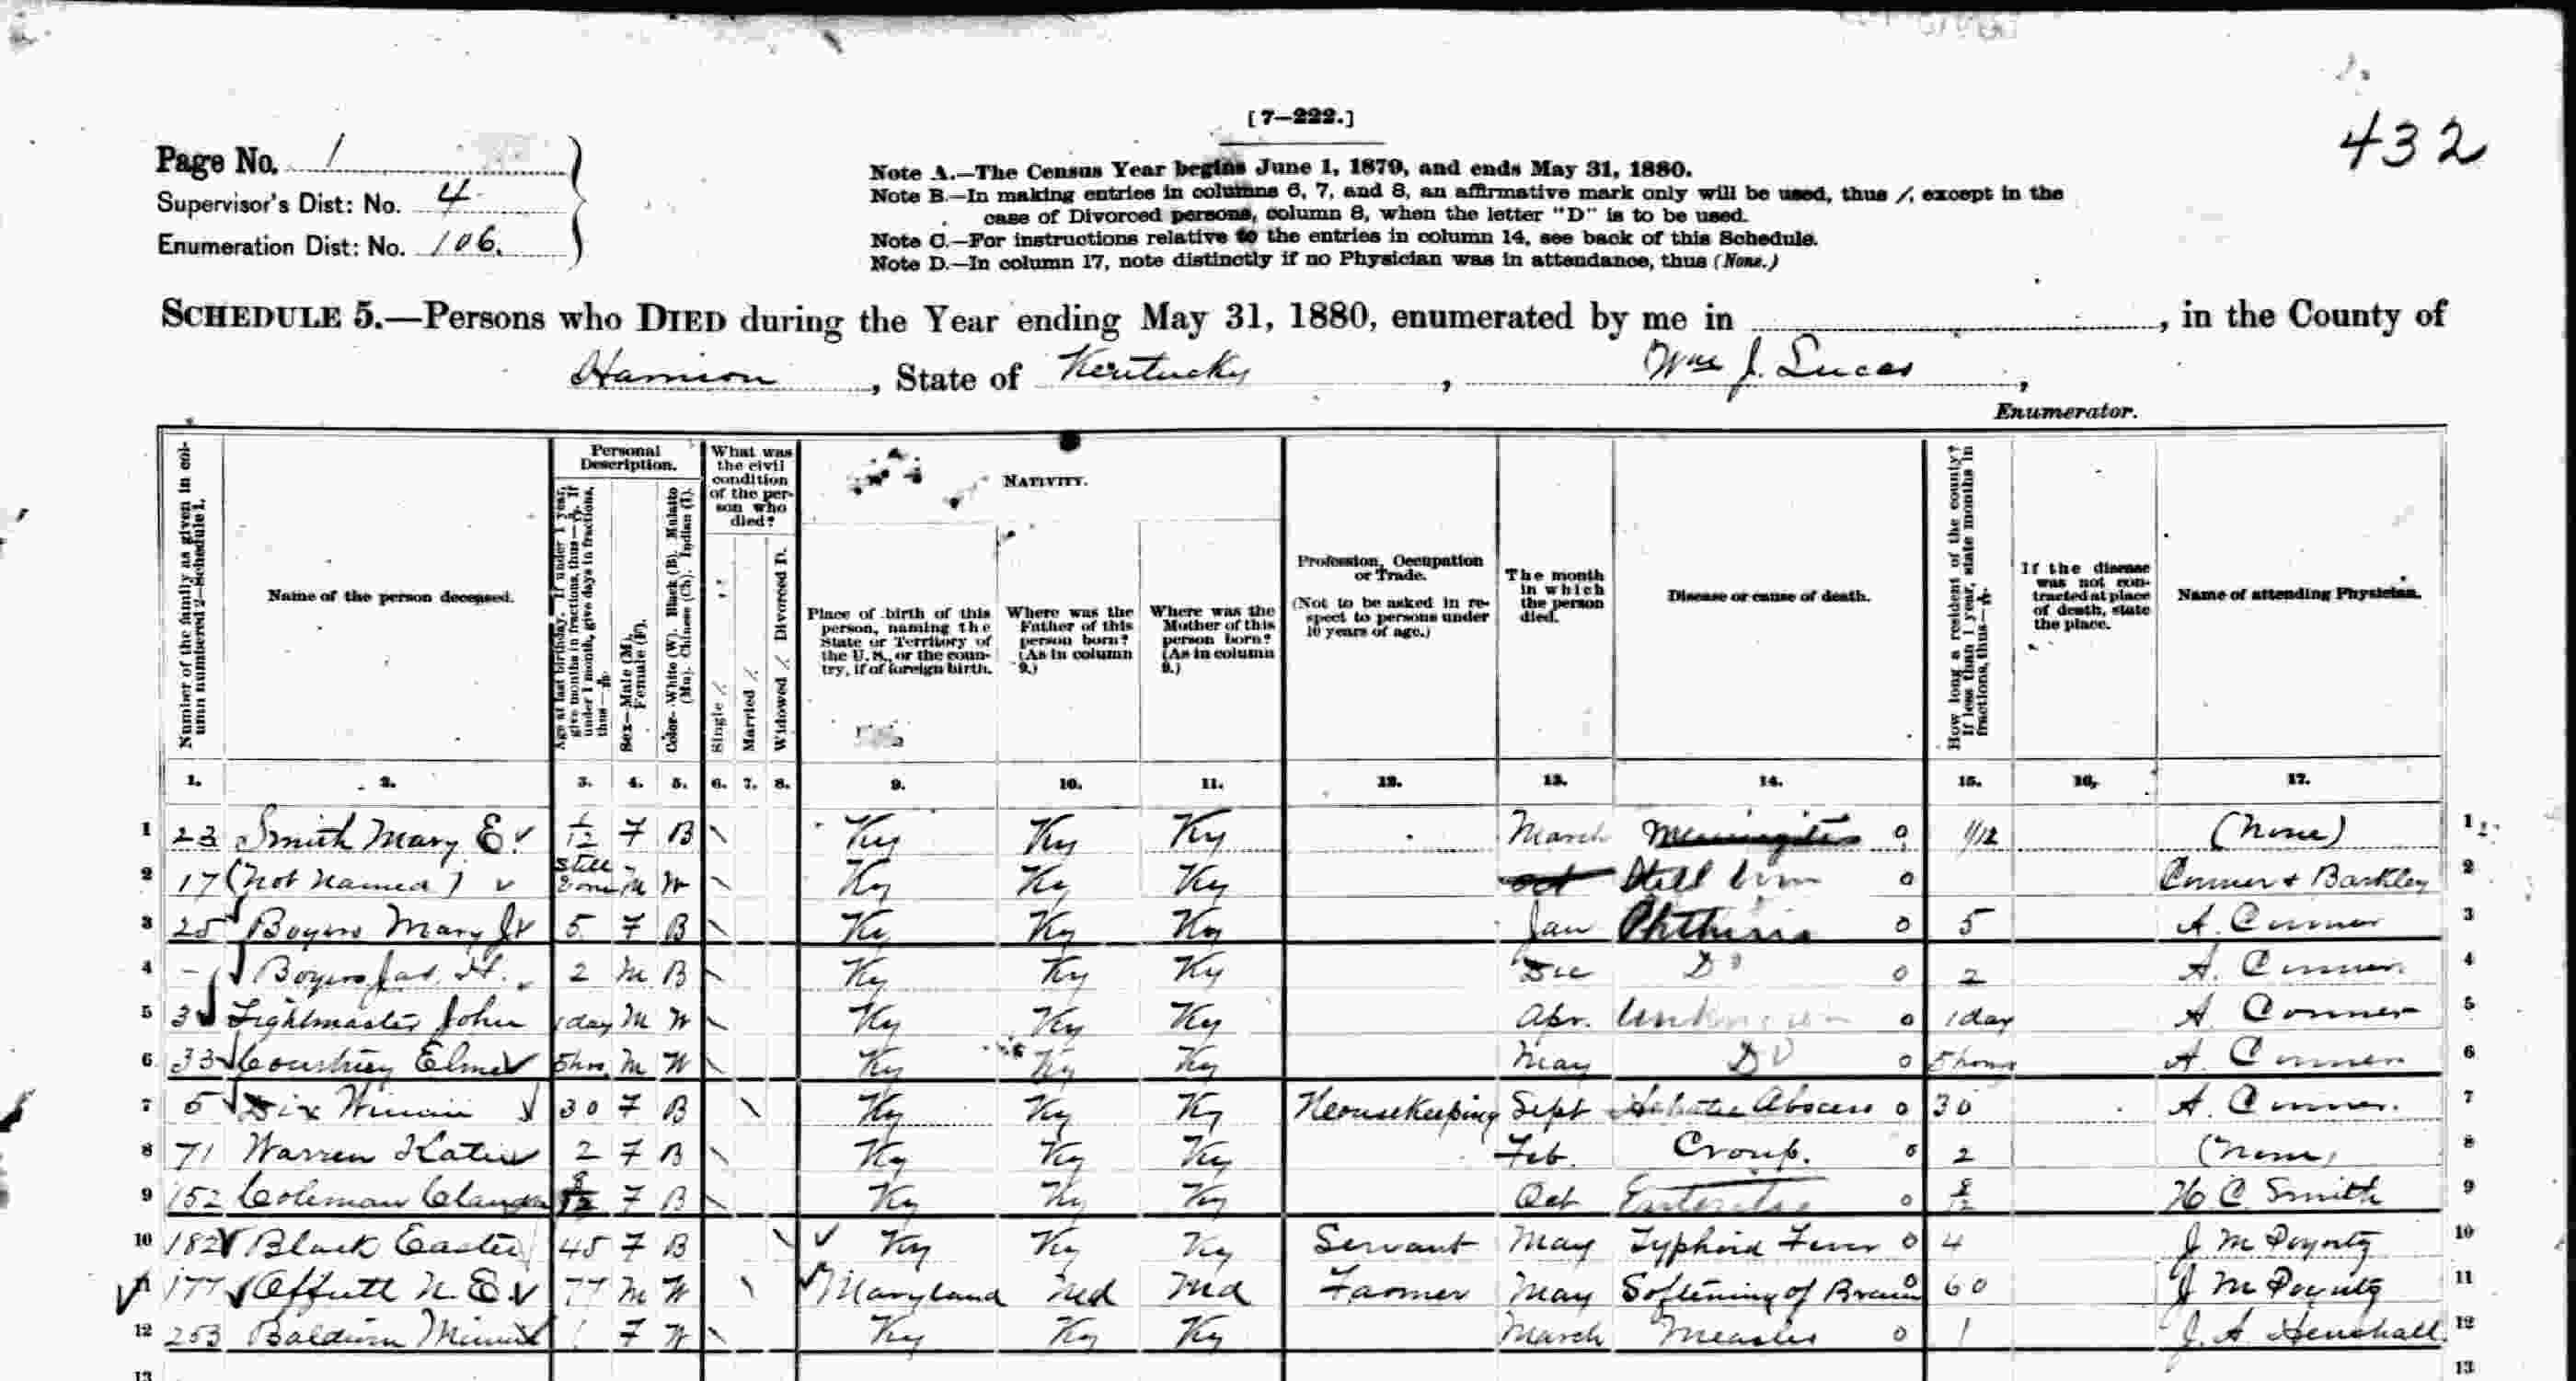 [7–222.]
432
Page No. 1
Supervisor's Dist: No. 4
Enumeration Dist: No. 106.
Note A.—The Census Year begins June 1, 1879, and ends May 31, 1880.
Note B.—In making entries in columns 6, 7, and 8, an affirmative mark only will be used, thus /, except in the
case of Divorced persons, column 8, when the letter "D" is to be used.
Note C.—For instructions relative to the entries in column 14, see back of this Schedule.
Note D.—In column 17, note distinctly if no Physician was in attendance, thus (None.)
SCHEDULE 5.—Persons who DIED during the Year ending May 31, 1880, enumerated by me in , in the County of
Harrison, State of Kentucky, Wm J. Lucas,
Enumerator.
Number of the family as given in column numbered 2—Schedule 1.
Name of the person deceased.
Personal Description.
Age at last birthday. If under 1 year, give months in fractions, thus— If under 1 month, give days in fractions, thus—
Sex—Male (M), Female (F).
Color—White (W). Black (B). Mulatto (Mu). Chinese (Ch). Indian (I).
What was the civil condition of the person who died?
Single /.
Married /.
Widowed /. Divorced D.
NATIVITY.
Place of birth of this person, naming the State or Territory of the U. S., or the country, if of foreign birth.
Where was the Father of this person born? (As in column 9.)
Where was the Mother of this person born? (As in column 9.)
Profession, Occupation or Trade. (Not to be asked in respect to persons under 10 years of age.)
The month in which the person died.
Disease or cause of death.
How long a resident of the county? If less than 1 year, state months in fractions, thus—
If the disease was not contracted at place of death, state the place.
Name of attending Physician.
1. 2. 3. 4. 5. 6. 7. 8. 9. 10. 11. 12. 13. 14. 15. 16. 17.
1 23 Smith Mary E. 1/12 F B \ Ky Ky Ky March Meningitis 0 1/12 (None) 1
2 17 (Not Named) Still Born M W \ Ky Ky Ky Oct Still born 0 Conner & Barkley 2
3 25 Boyers Mary J 5 F B \ Ky Ky Ky Jan Phthisis 0 5 A. Conner 3
4 – Boyers Jas. H. 2 M B \ Ky Ky Ky Dec Do 0 2 A. Conner. 4
5 3 Lightmaster John 1 day M W \ Ky Ky Ky Apr. Unknown 0 1 day A Conner 5
6 33 Courtney Elmer 5 hrs M W \ Ky Ky Ky May Do 0 5 hours A. Conner 6
7 5 Dix 30 F B \ Ky Ky Ky Housekeeping Sept Abscess 0 30 A. Conner. 7
8 71 Warren Katie 2 F B \ Ky Ky Ky Feb. Croup. 0 2 (None) 8
9 152 Coleman 8/12 F B \ Ky Ky Ky Oct 0 8/12 H C Smith 9
10 182 Black Easter 45 F B \ Ky Ky Ky Servant May Typhoid Fever 0 4 J M Poyntz 10
11 177 Offutt N. E. 77 M W \ Maryland Md Md Farmer May Softening of Brain 0 60 J M Poyntz 11
12 253 Baldwin Minnie 1 F W \ Ky Ky Ky March Measles 0 1 J. A. Henshall 12
13 13